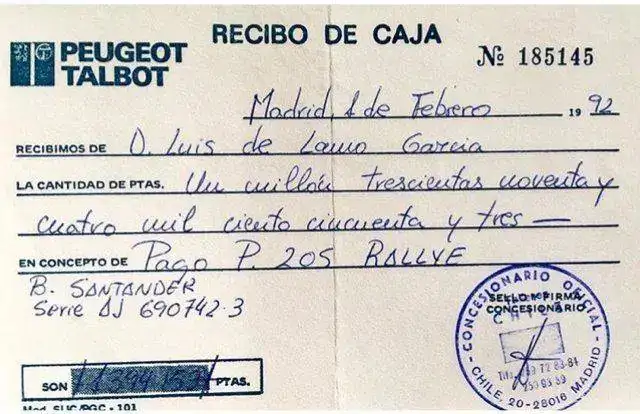 RECIBO DE CAJA
PEUGEOT
TALBOT
Nº 185145
Madrid, 1 de Febrero 1992
RECIBIMOS DE D. Luis de Lamo Garcia
LA CANTIDAD DE PTAS. Un millón trescientas noventa y
cuatro mil ciento cincuenta y tres —
EN CONCEPTO DE Pago P. 205 RALLYE
B. SANTANDER
Serie AJ 690742-3
CONCESIONARIO OFICIAL
SELLO Y FIRMA
CONCESIONARIO
CHILE, 20-28016 MADRID
SON 1.394.153 PTAS.
Mod. SUC/PGC - 101